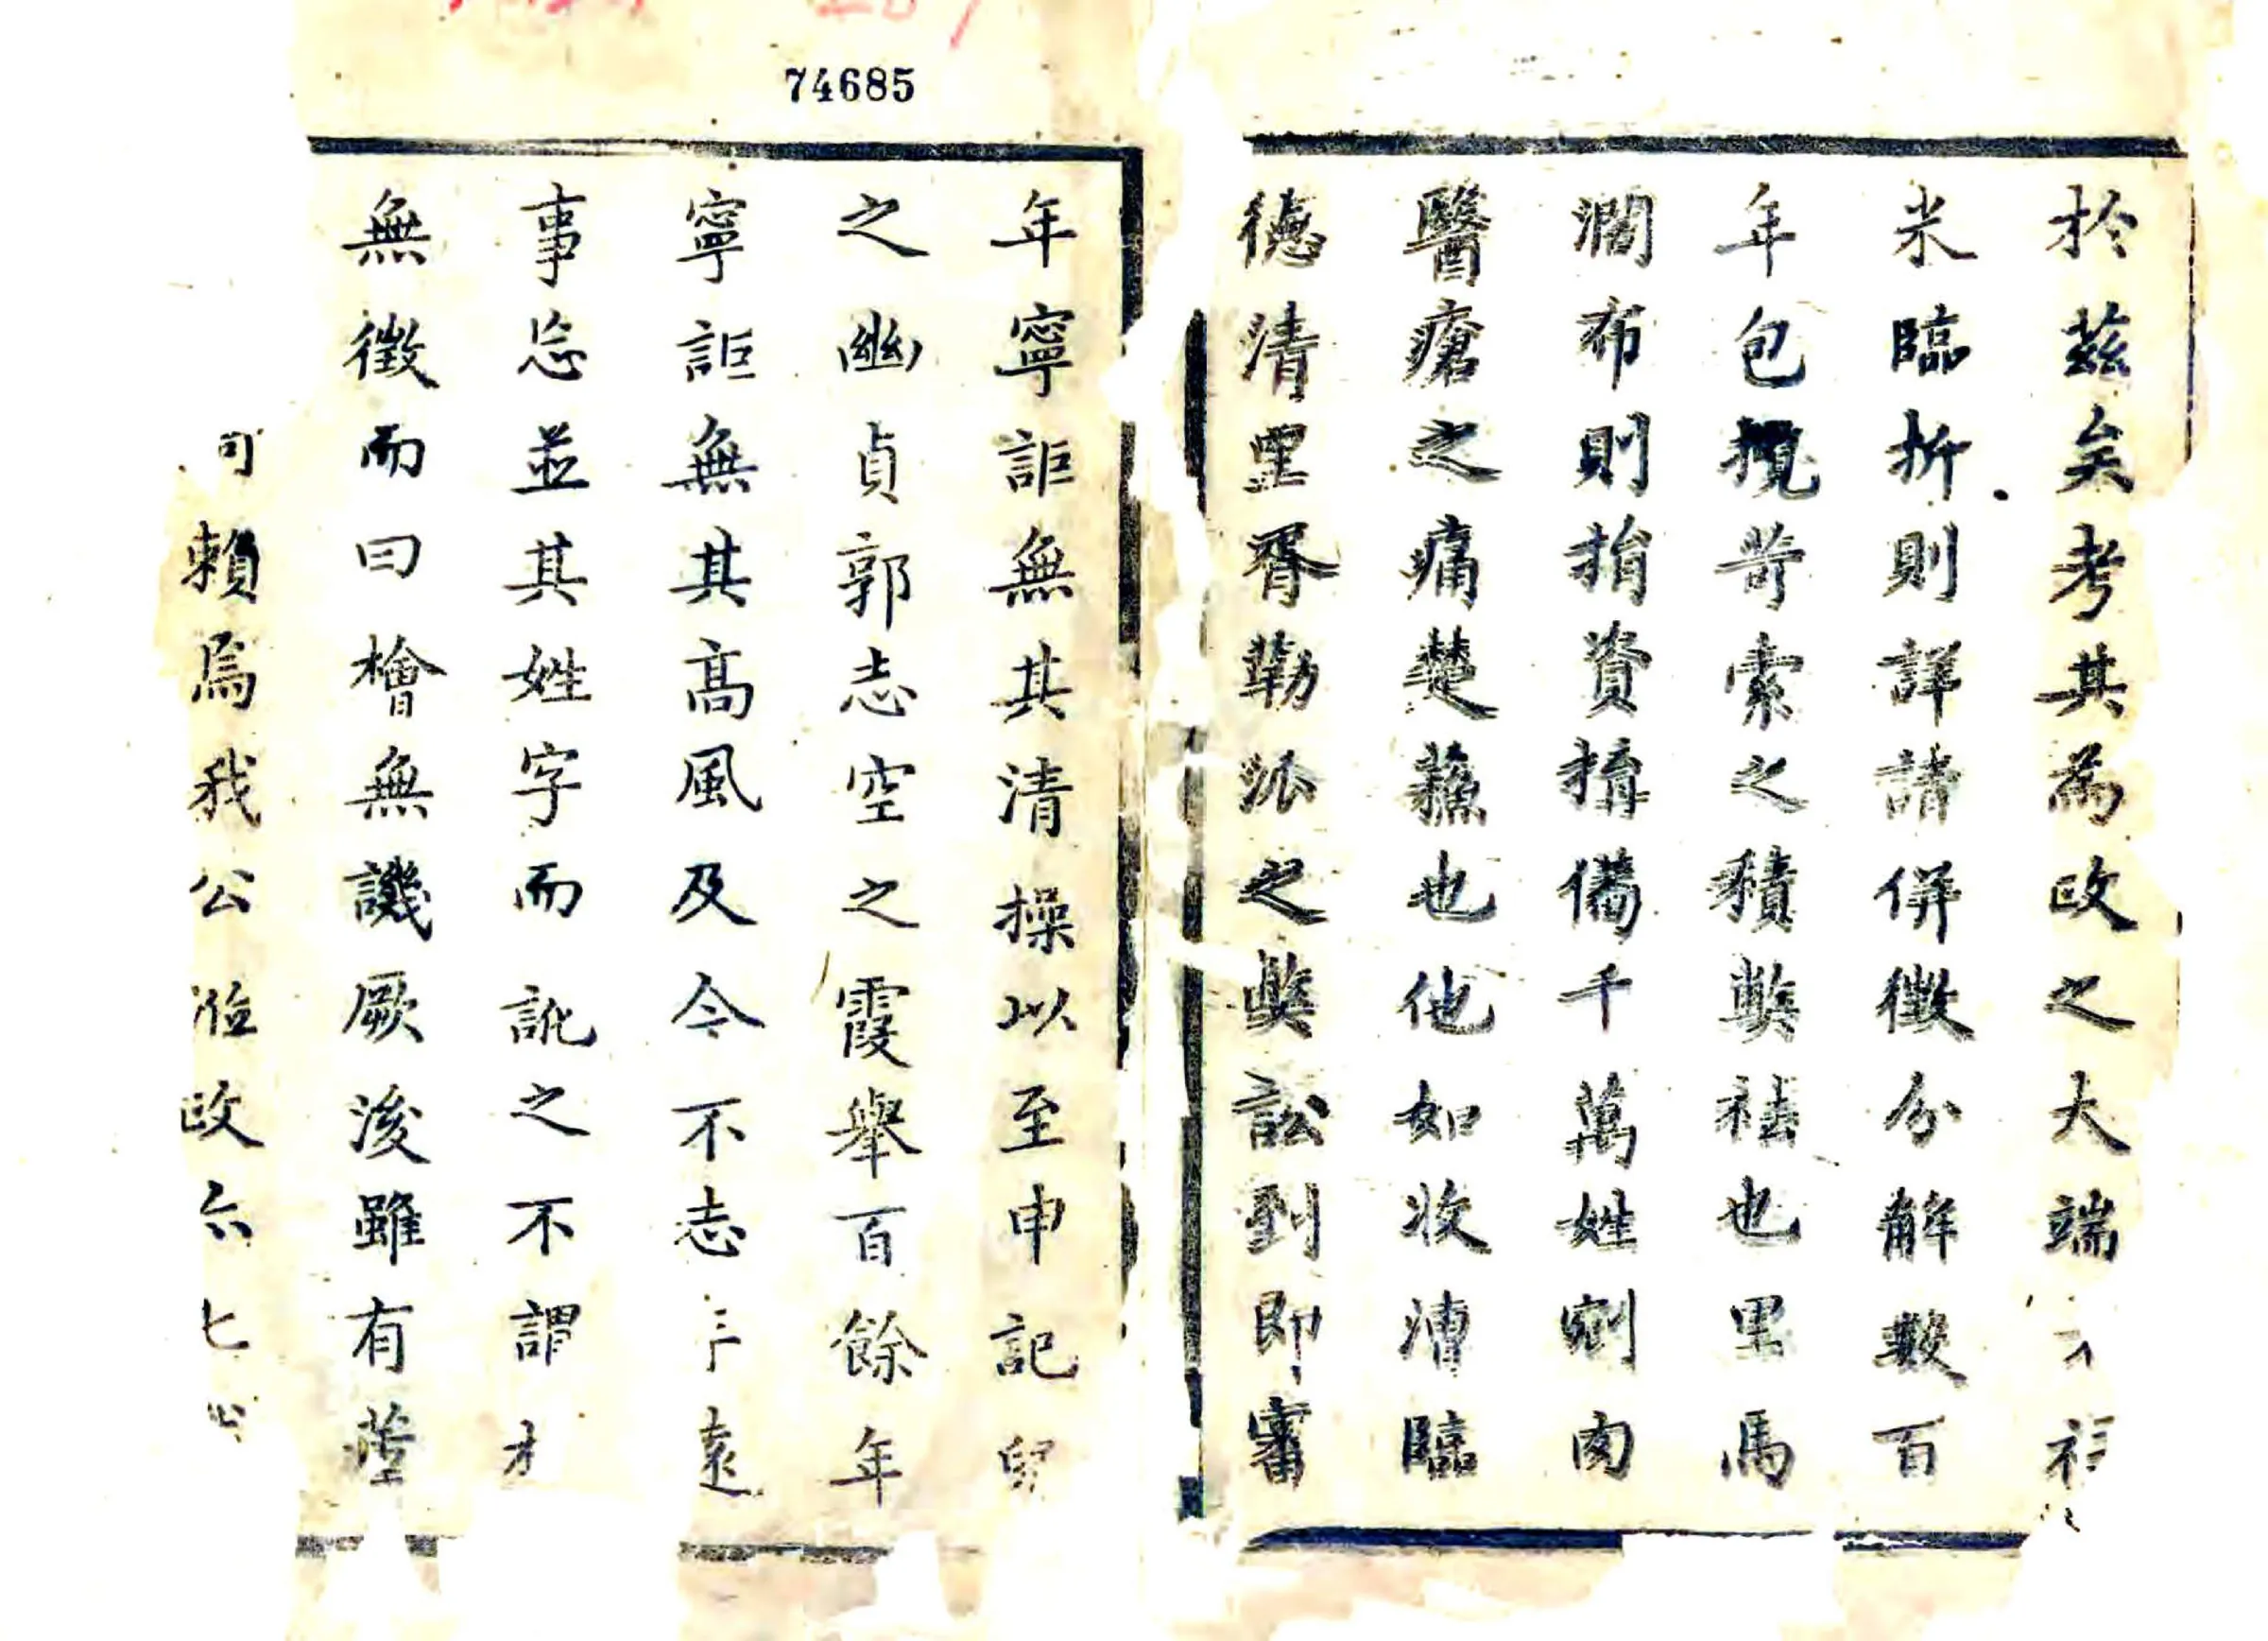 74685
於茲矣考其為政之大端
米臨折則詳請併徵分解數百
年包攬苛索之積弊祛也里馬
澗布則捐資擠僃千萬姓剜肉
醫瘡之痛楚蘓也他如收漕臨
德清里胥勒派之弊訟到即審
年寧詎無其清操以至申記
之幽貞郭志空之霞舉百餘年
寧詎無其高風及今不志遠
事忘並其姓字而訛之不謂
無徵而曰檜無譏厥後雖有
賴焉我公涖政六七